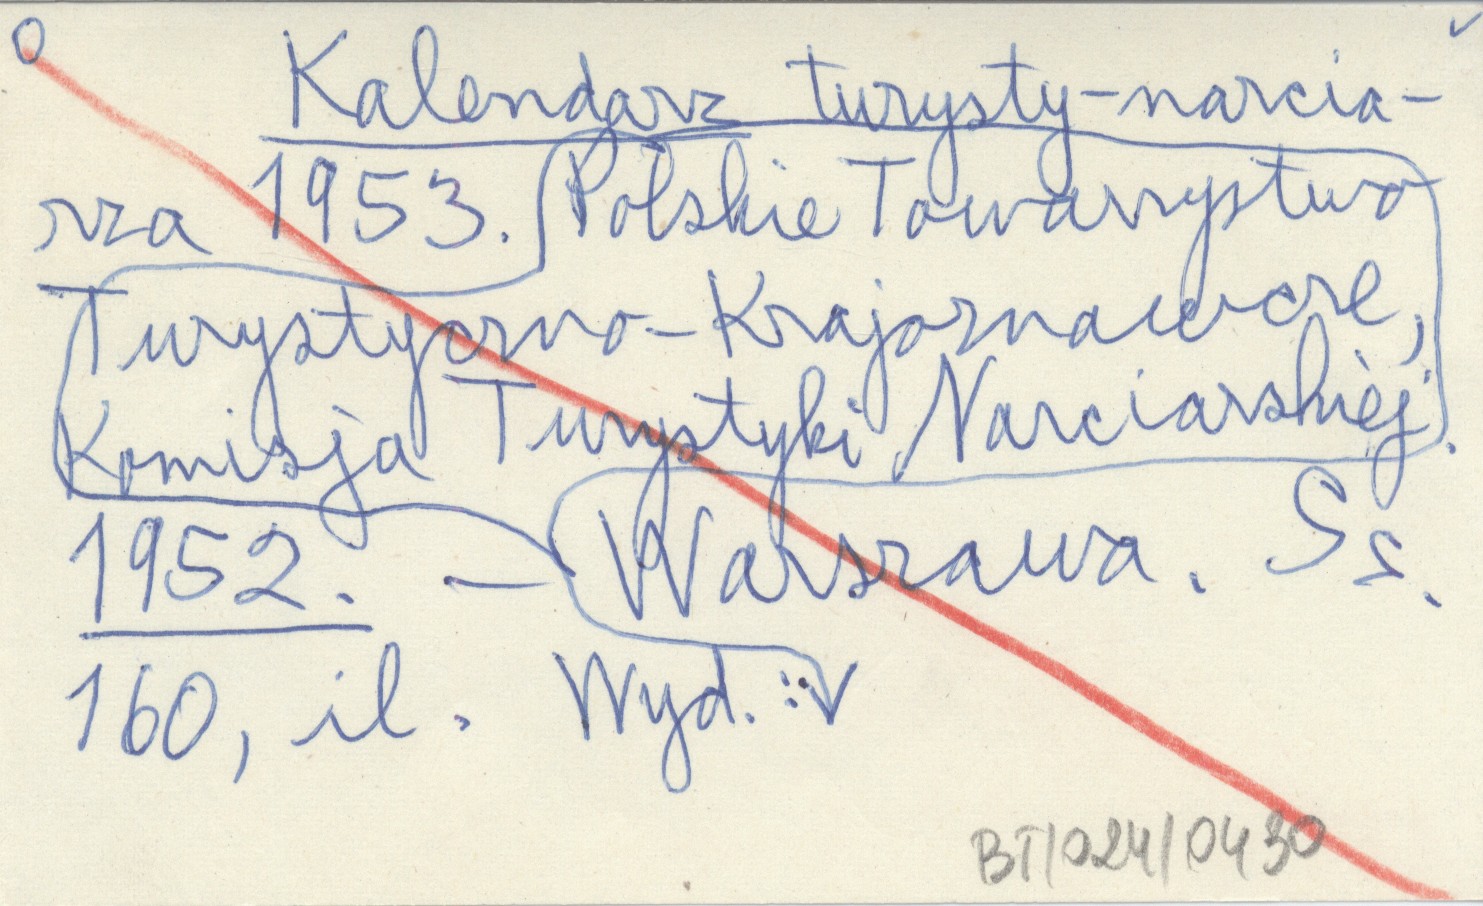 Kalendarz turysty-narcia-
rza 1953. Polskie Towarzystwo
Turystyczno-Krajoznawcze,
Komisja Turystyki Narciarskiej.
1952. — Warszawa. Ss.
160, il. Wyd.:
BT/024/0430